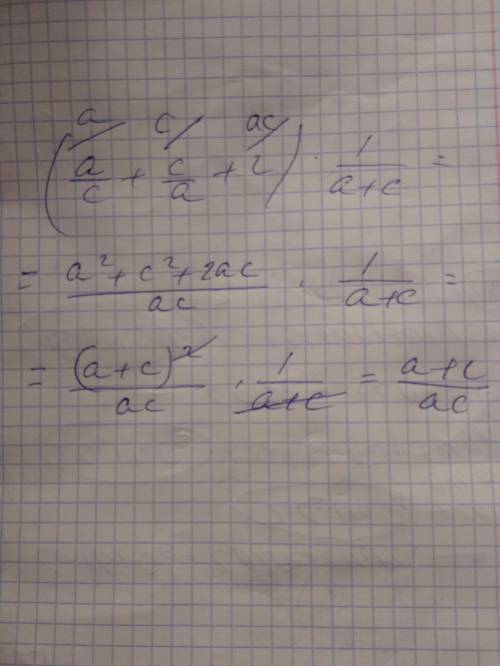 a c ac
(a/c + c/a + 2) · 1/(a+c) =
= (a² + c² + 2ac)/ac · 1/(a+c) =
= (a+c)²/ac · 1/(a+c) = (a+c)/ac